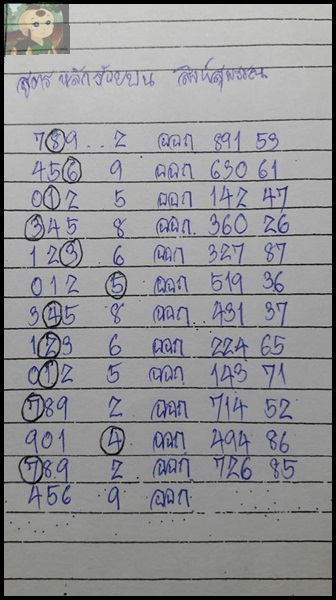 สูตร หลักร้อยบน
789.. 2 ออก 891 53
456 9 ออก 630 61
012 5 ออก 142 47
345 8 ออก 360 26
123 6 ออก 327 87
012 5 ออก 519 36
345 8 ออก 431 37
123 6 ออก 224 65
012 5 ออก 143 71
789 2 ออก 714 52
901 4 ออก 494 86
789 2 ออก 726 85
456 9 ออก